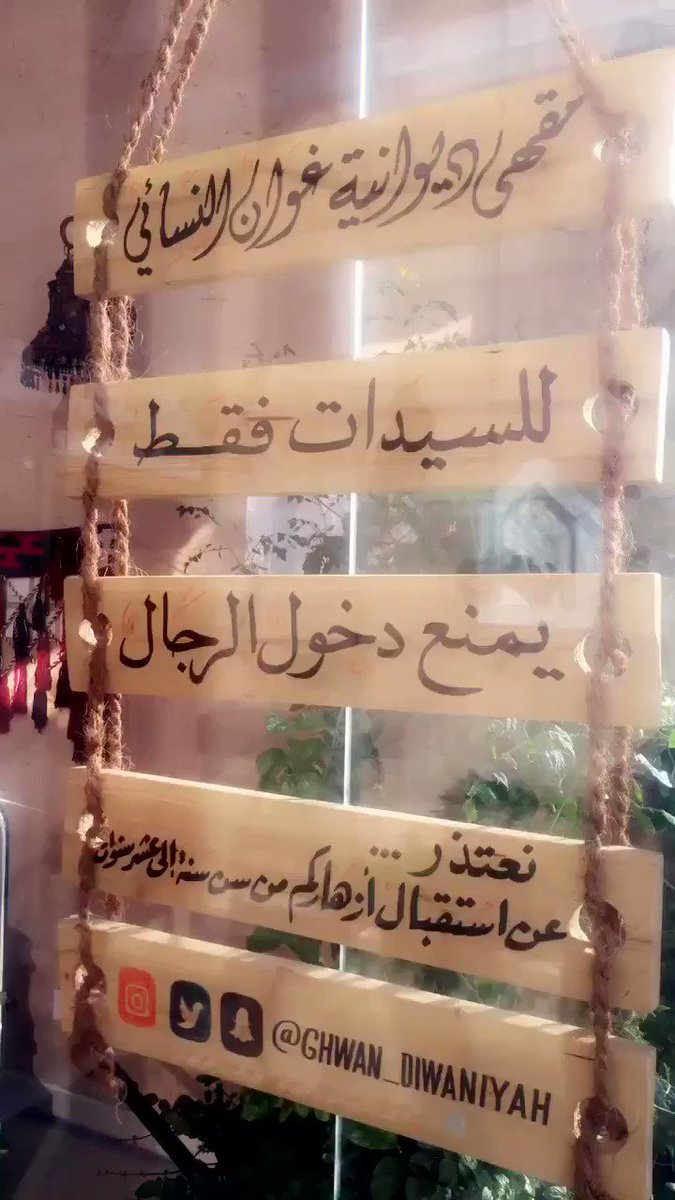 مقهى ديوانية غوان النسائي
للسيدات فقط
يمنع دخول الرجال
نعتذر ...
عن استقبال أزهاركم من سن سنة إلى عشر سنوات
@GHWAN_DIWANIYAH